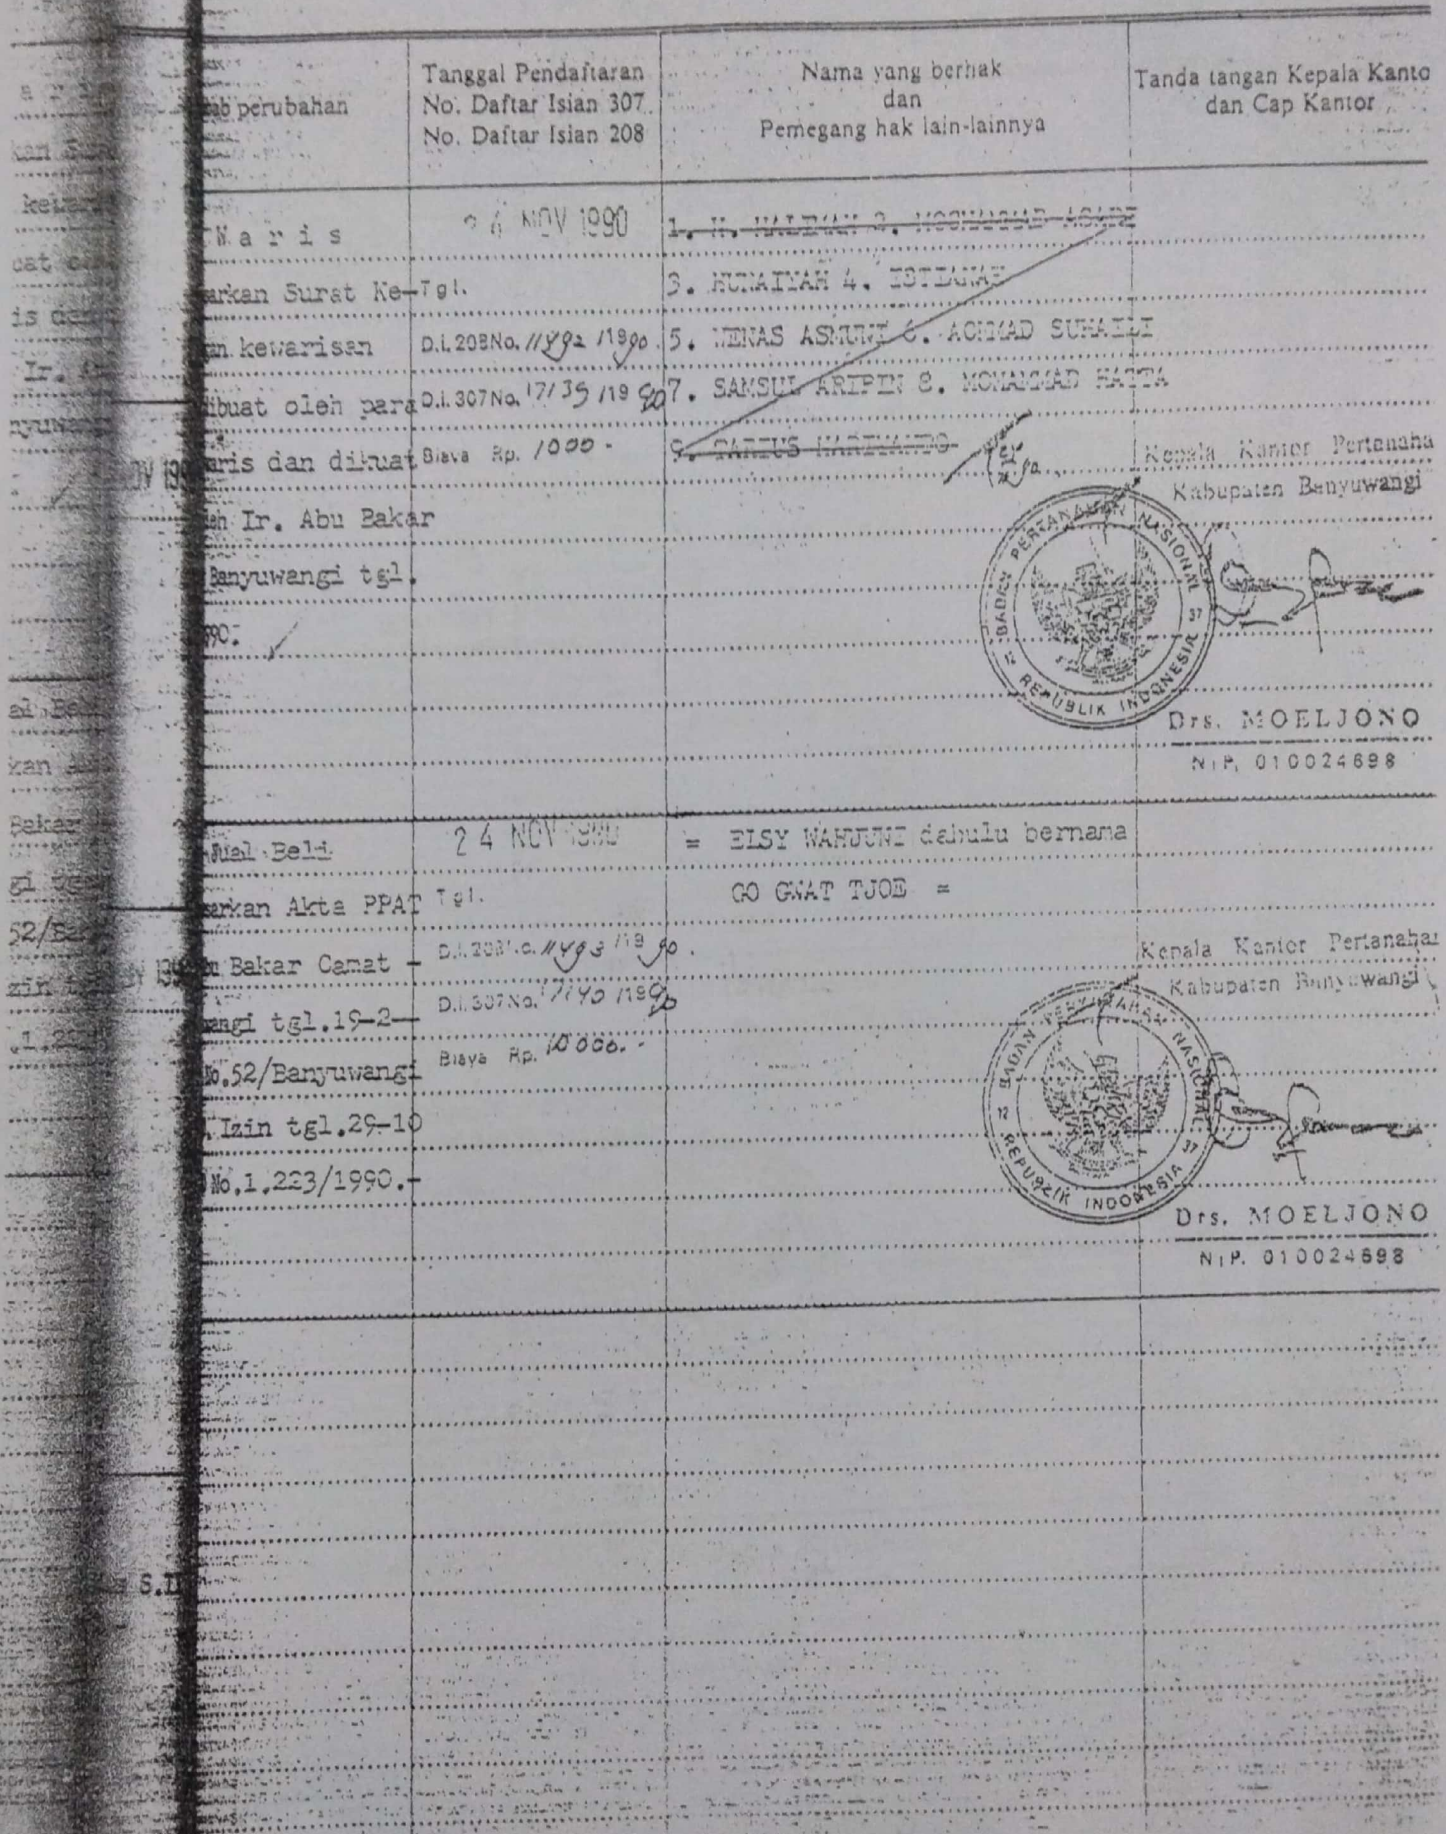 perubahan
Tanggal Pendaftaran
No. Daftar Isian 307
No. Daftar Isian 208
Nama yang berhak
dan
Pemegang hak lain-lainnya
Tanda tangan Kepala Kanto
dan Cap Kantor
W a r i s
arkan Surat Ke-
an kewarisan
ibuat oleh para
aris dan dikuat
eh Ir. Abu Bakar
Banyuwangi tgl.
990.
24 NOV 1990
Tgl.
D.I. 208 No. 11492 /1990.
D.I. 307 No. 17139 /1990
Biaya Rp. 1000 -
3. HUNAIYAH 4. ISTIANAH
5. WENAS ASMUNI 6. ACHMAD SUHAILI
7. SAMSUL ARIPIN 8. MOHAMMAD HATTA
9.
Kepala Kantor Pertanaha
Kabupaten Banyuwangi
BADAN PERTANAHAN NASIONAL
REPUBLIK INDONESIA
12
37
Drs. MOELJONO
NIP. 010024698
Jual Beli
arkan Akta PPAT
Bakar Camat -
angi tgl.19-2-
No.52/Banyuwangi
Izin tgl.29-10
No.1.223/1990.-
24 NOV 1990
Tgl.
D.I. 208 No. 11493 /1990.
D.I. 307 No. 17140 /1990
Biaya Rp. 10000.-
= ELSY WAHJUNI dahulu bernama
GO GWAT TJOE =
Kepala Kantor Pertanahan
Kabupaten Banyuwangi
BADAN PERTANAHAN NASIONAL
REPUBLIK INDONESIA
12
37
Drs. MOELJONO
NIP. 010024698